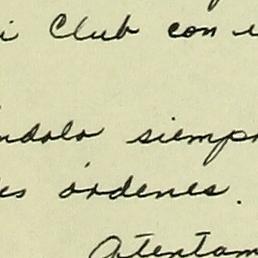 i Club con
ndolo siempr
es órdenes.
Atentam